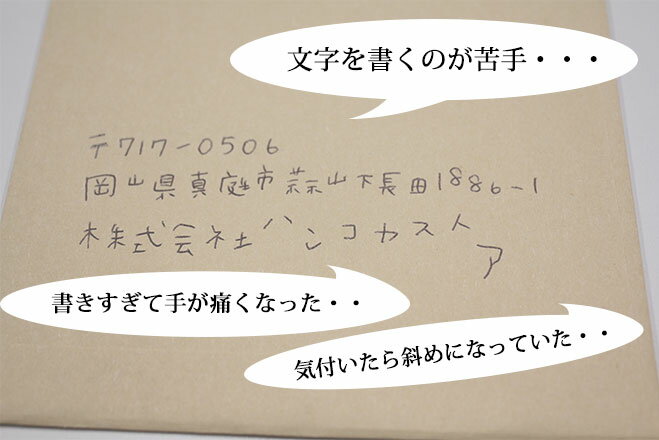 文字を書くのが苦手・・・
〒717-0506
岡山県真庭市蒜山下長田1886-1
株式会社ハンコヤストア
書きすぎて手が痛くなった・・
気付いたら斜めになっていた・・